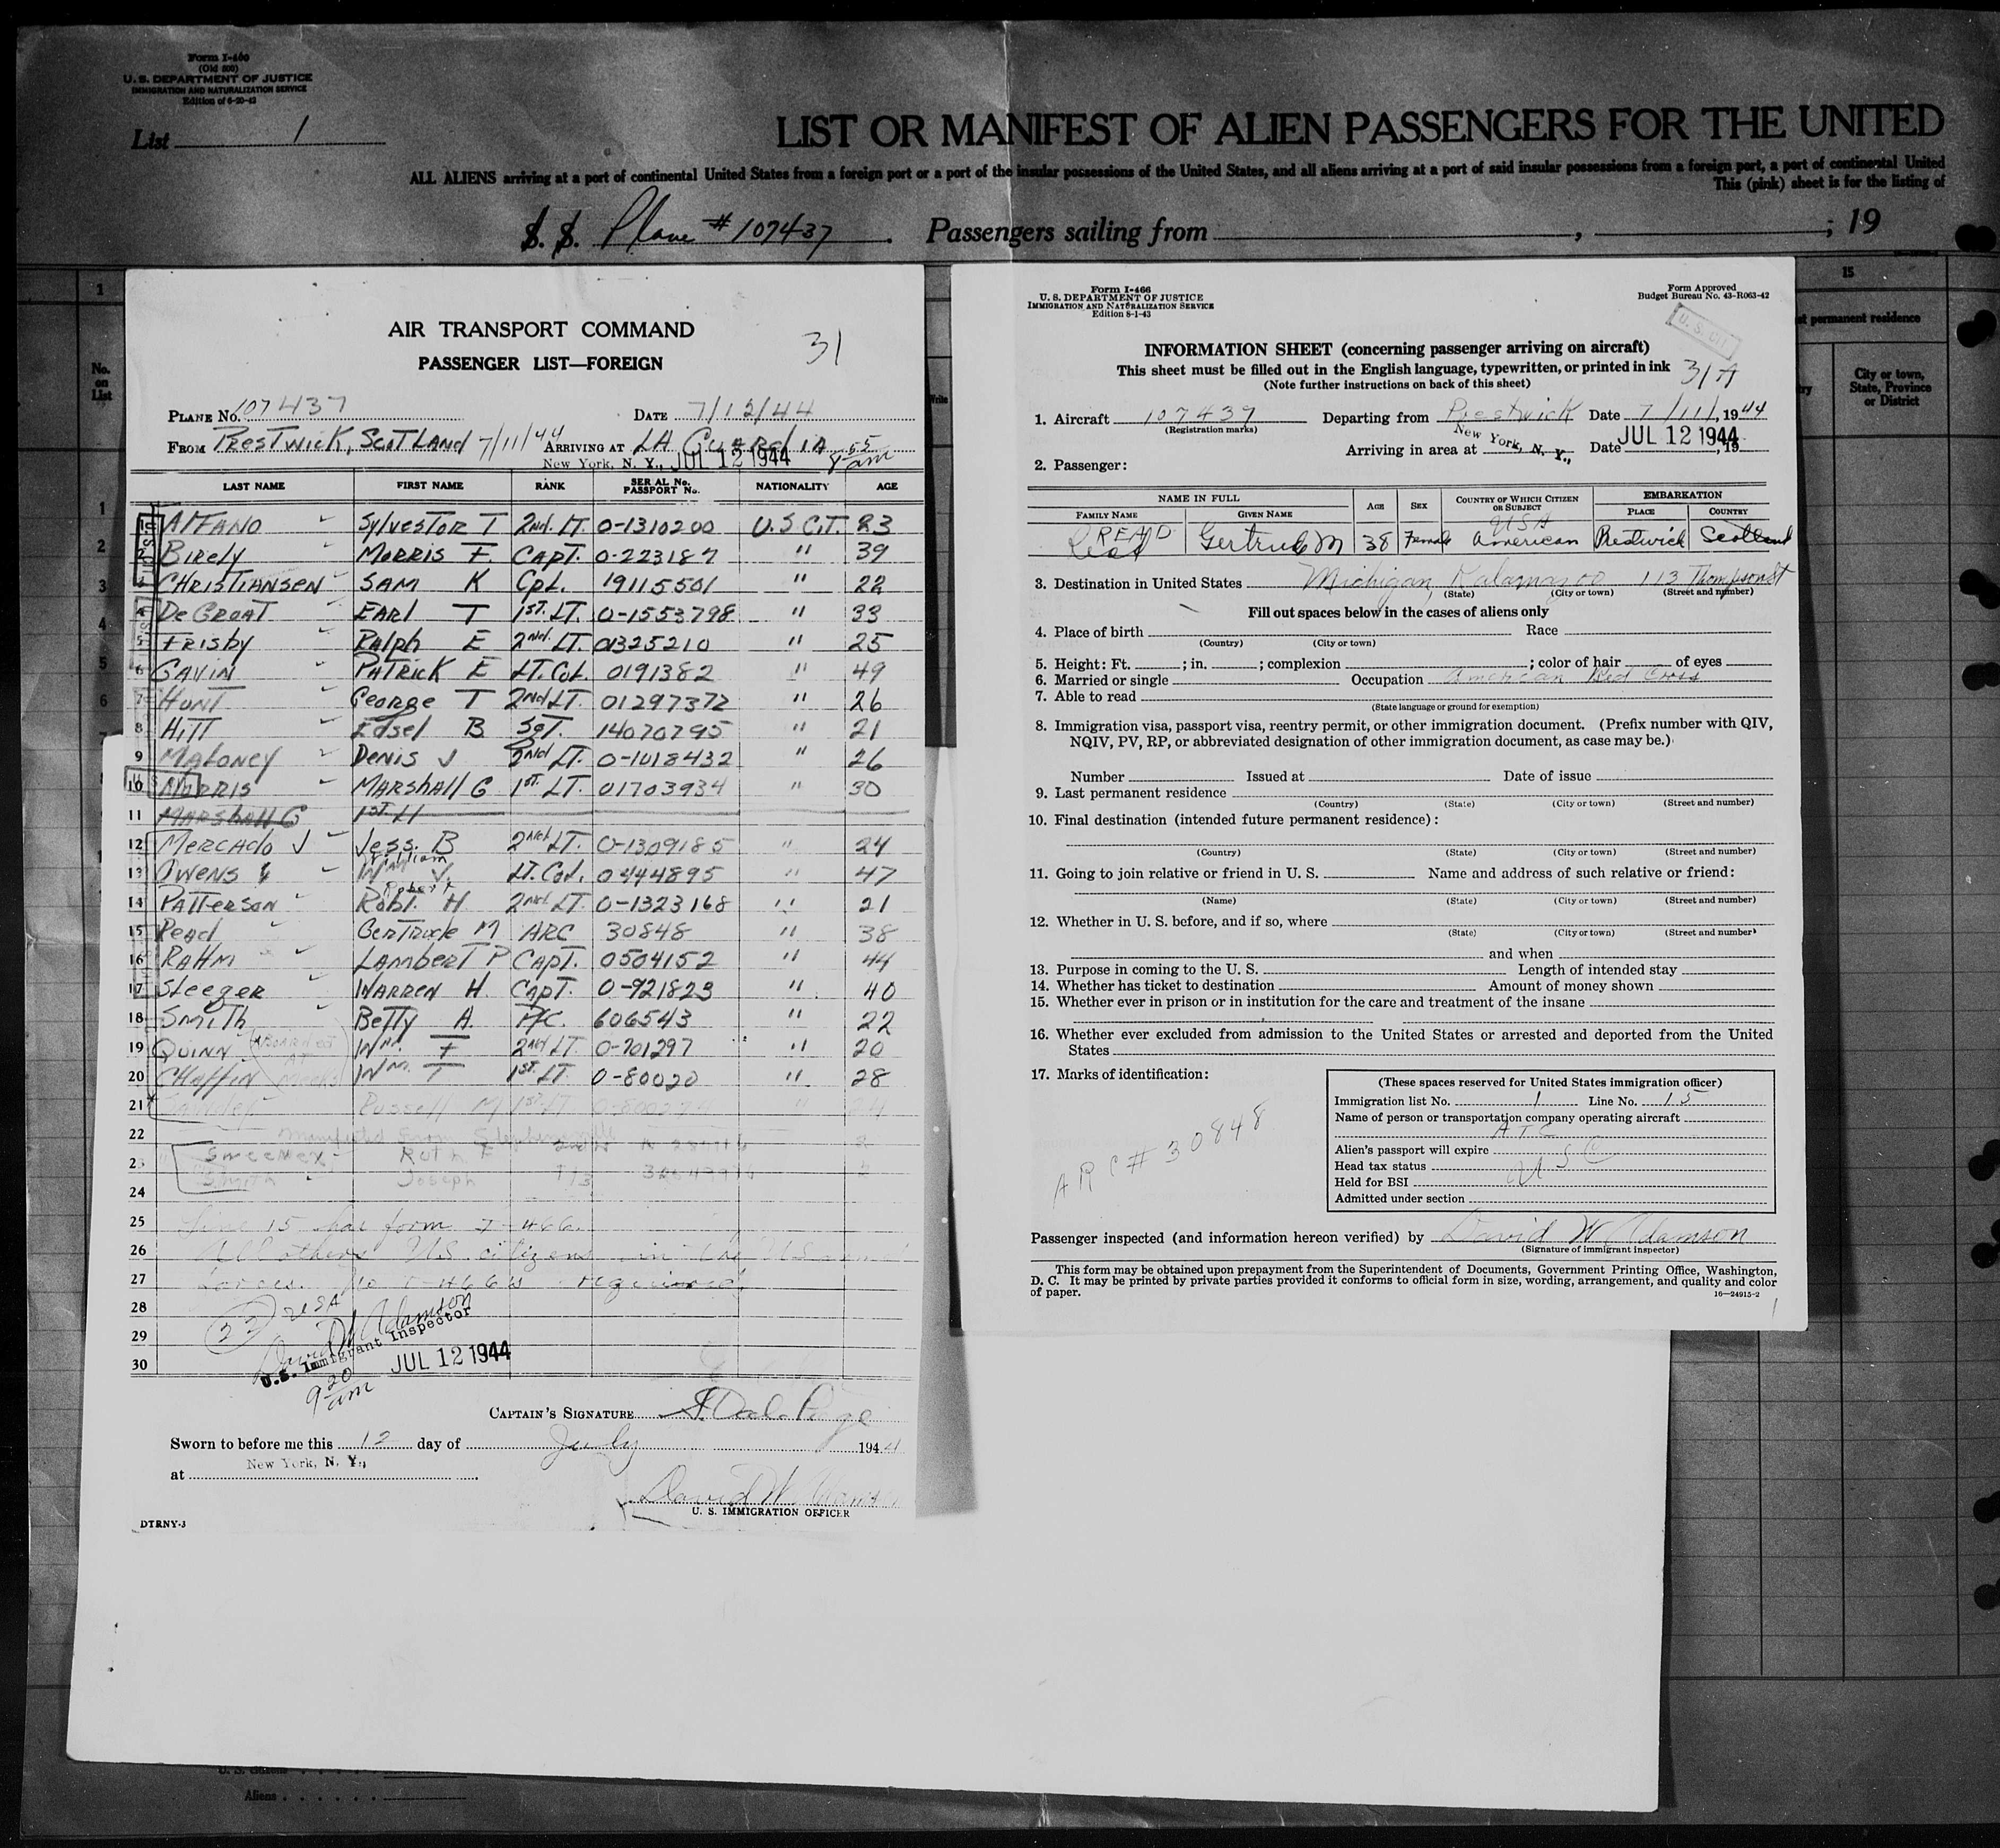 Form I-460
(Old 500)
U. S. DEPARTMENT OF JUSTICE
IMMIGRATION AND NATURALIZATION SERVICE
Edition of 6-20-43
List 1
LIST OR MANIFEST OF ALIEN PASSENGERS FOR THE UNITED
ALL ALIENS arriving at a port of continental United States from a foreign port or a port of the insular possessions of the United States, and all aliens arriving at a port of said insular possessions from a foreign port, a port of continental United
This (pink) sheet is for the listing of
S. S. Plane #107437 . Passengers sailing from , ; 19
1
No. on List
15
st permanent residence
City or town, State, Province or District
AIR TRANSPORT COMMAND
PASSENGER LIST—FOREIGN
31
PLANE No. 107437 DATE 7/12/44
FROM PRESTWICK, SCOTLAND 7/11/44 ARRIVING AT LA GUARDIA 8 55 am
New York, N. Y., JUL 12 1944
LAST NAME FIRST NAME RANK SERIAL No. PASSPORT No. NATIONALITY AGE
1 ALFANO SylvesTor T 2nd. LT. 0-1310200 U.S CIT. 23
2 Birely MORRIS F. CAPT. 0-223187 " 39
3 CHRISTIANSEN SAM K CpL. 19115501 " 22
4 DeGROAT EARL T 1ST. LT. 0-1553798 " 33
5 FRISby RAlph E 2nd. LT. 01325210 " 25
6 GAVIN PATRICK E LT. CoL. 0191382 " 49
7 HUNT George T 2nd LT. 01297372 " 26
8 HITT Edsel B SgT. 14070795 " 21
9 MALONEY Denis J 2nd LT. 0-1018432 " 26
10 MARSHALL G 1ST. LT. 01703934 " 30
11 MARSHALL G 1ST. LT
12 MERCADO J Jess. B 2nd LT. 0-1309185 " 24
13 OWENS Wm William V. LT. Col. 0444895 " 47
14 PATTERSON Robt. Robert H 2nd LT. 0-1323168 " 21
15 Read GERTRUDE M ARC 30848 " 38
16 RAHM LAMBERT P CAPT. 0504152 " 44
17 STEEGER WARREN H. CAPT. 0-921823 " 40
18 SMITH BeTTy A. Pfc. 606543 " 22
19 QUINN Wm F 2nd LT. 0-701297 " 20
20 CHAFFIN Wm. T 1ST. LT. 0-80020 " 28
21 Russell M 1st LT "
22
23 Smith Joseph T/3
24
25 Line 15 has form I-466.
26 All others U.S. citizens in the U.S.
27 forces. No I-466's required.
28 (22) USA
29 David W Adamson
U.S. Immigrant Inspector
30 JUL 12 1944
9 20 am
CAPTAIN'S SIGNATURE
Sworn to before me this 12 day of July 1944
at New York, N. Y.,
David W. Adamson
U. S. IMMIGRATION OFFICER
DTRNY-3
Form I-466
U. S. DEPARTMENT OF JUSTICE
IMMIGRATION AND NATURALIZATION SERVICE
Edition 8-1-43
Form Approved
Budget Bureau No. 43-R063-42
U. S. CIT.
INFORMATION SHEET (concerning passenger arriving on aircraft)
This sheet must be filled out in the English language, typewritten, or printed in ink
(Note further instructions on back of this sheet)
31A
1. Aircraft 107437 Departing from Prestwick Date 7/11/, 1944
(Registration marks)
Arriving in area at New York, N. Y., Date JUL 12 1944, 19
2. Passenger:
NAME IN FULL AGE SEX COUNTRY OF WHICH CITIZEN OR SUBJECT EMBARKATION
FAMILY NAME GIVEN NAME PLACE COUNTRY
READ USA
Read Gertrude M 38 Female American Prestwick Scotland
3. Destination in United States Michigan, Kalamazoo 113 Thompson St
(State) (City or town) (Street and number)
Fill out spaces below in the cases of aliens only
4. Place of birth Race
(Country) (City or town)
5. Height: Ft. ; in. ; complexion ; color of hair of eyes
6. Married or single Occupation American Red Cross
7. Able to read
(State language or ground for exemption)
8. Immigration visa, passport visa, reentry permit, or other immigration document. (Prefix number with QIV,
NQIV, PV, RP, or abbreviated designation of other immigration document, as case may be.)
Number Issued at Date of issue
9. Last permanent residence
(Country) (State) (City or town) (Street and number)
10. Final destination (intended future permanent residence):
(Country) (State) (City or town) (Street and number)
11. Going to join relative or friend in U. S. Name and address of such relative or friend:
(Name) (State) (City or town) (Street and number)
12. Whether in U. S. before, and if so, where
(State) (City or town) (Street and number)
and when
13. Purpose in coming to the U. S. Length of intended stay
14. Whether has ticket to destination Amount of money shown
15. Whether ever in prison or in institution for the care and treatment of the insane
16. Whether ever excluded from admission to the United States or arrested and deported from the United
States
17. Marks of identification:
ARC # 30848
(These spaces reserved for United States immigration officer)
Immigration list No. 1 Line No. 15
Name of person or transportation company operating aircraft
ATC
Alien's passport will expire
Head tax status USC
Held for BSI
Admitted under section
Passenger inspected (and information hereon verified) by David W Adamson
(Signature of immigrant inspector)
This form may be obtained upon prepayment from the Superintendent of Documents, Government Printing Office, Washington,
D. C. It may be printed by private parties provided it conforms to official form in size, wording, arrangement, and quality and color
of paper. 16—24915-2
U. S. Citizens
Aliens